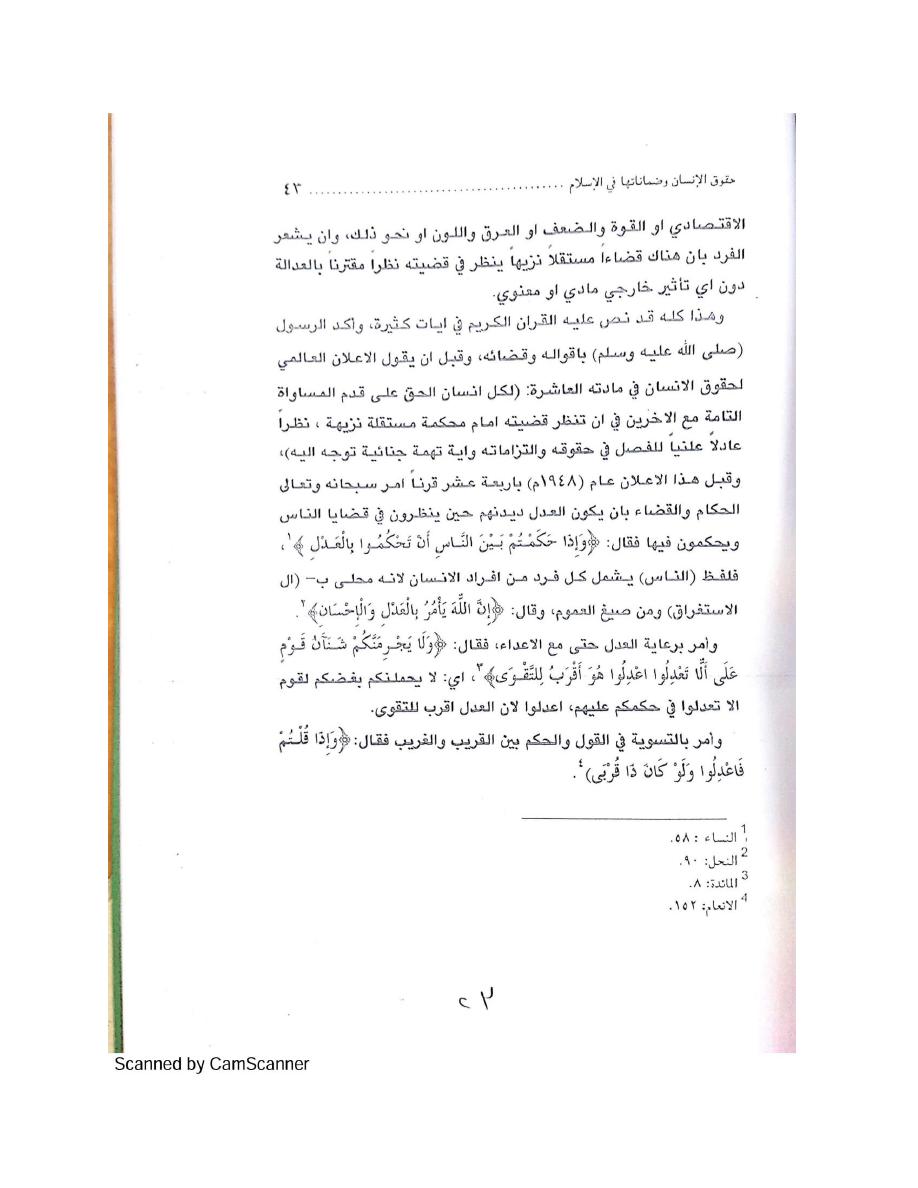 حقوق الإنسان وضماناتها في الإسلام ............................................. ٤٣
الاقتصادي او القوة والضعف او العرق واللون او نحو ذلك، وان يشعر
الفرد بان هناك قضاءاً مستقلاً نزيهاً ينظر في قضيته نظراً مقترناً بالعدالة
دون اي تأثير خارجي مادي او معنوي.
وهذا كله قد نص عليه القران الكريم في ايات كثيرة، واكد الرسول
(صلى الله عليه وسلم) باقواله وقضائه، وقبل ان يقول الاعلان العالمي
لحقوق الانسان في مادته العاشرة: (لكل انسان الحق على قدم المساواة
التامة مع الاخرين في ان تنظر قضيته امام محكمة مستقلة نزيهة ، نظراً
عادلاً علنياً للفصل في حقوقه والتزاماته واية تهمة جنائية توجه اليه)،
وقبل هذا الاعلان عام (١٩٤٨م) باربعة عشر قرناً امر سبحانه وتعالى
الحكام والقضاء بان يكون العدل ديدنهم حين ينظرون في قضايا الناس
ويحكمون فيها فقال: ﴿وَإِذَا حَكَمْتُمْ بَيْنَ النَّاسِ أَنْ تَحْكُمُوا بِالْعَدْلِ ﴾١،
فلفظ (الناس) يشمل كل فرد من افراد الانسان لانه محلى ب– (ال
الاستغراق) ومن صيغ العموم، وقال: ﴿إِنَّ اللَّهَ يَأْمُرُ بِالْعَدْلِ وَالْإِحْسَانِ﴾٢.
وأمر برعاية العدل حتى مع الاعداء، فقال: ﴿وَلَا يَجْرِمَنَّكُمْ شَنَآنُ قَوْمٍ
عَلَى أَلَّا تَعْدِلُوا اعْدِلُوا هُوَ أَقْرَبُ لِلتَّقْوَى﴾٣، اي: لا يحملنكم بغضكم لقوم
الا تعدلوا في حكمكم عليهم، اعدلوا لان العدل اقرب للتقوى.
وأمر بالتسوية في القول والحكم بين القريب والغريب فقال: ﴿وَإِذَا قُلْتُمْ
فَاعْدِلُوا وَلَوْ كَانَ ذَا قُرْبَى)٤.
1 النساء : ٥٨.
2 النحل: ٩٠.
3 المائدة: ٨.
4 الانعام: ١٥٢.
٢٣
Scanned by CamScanner